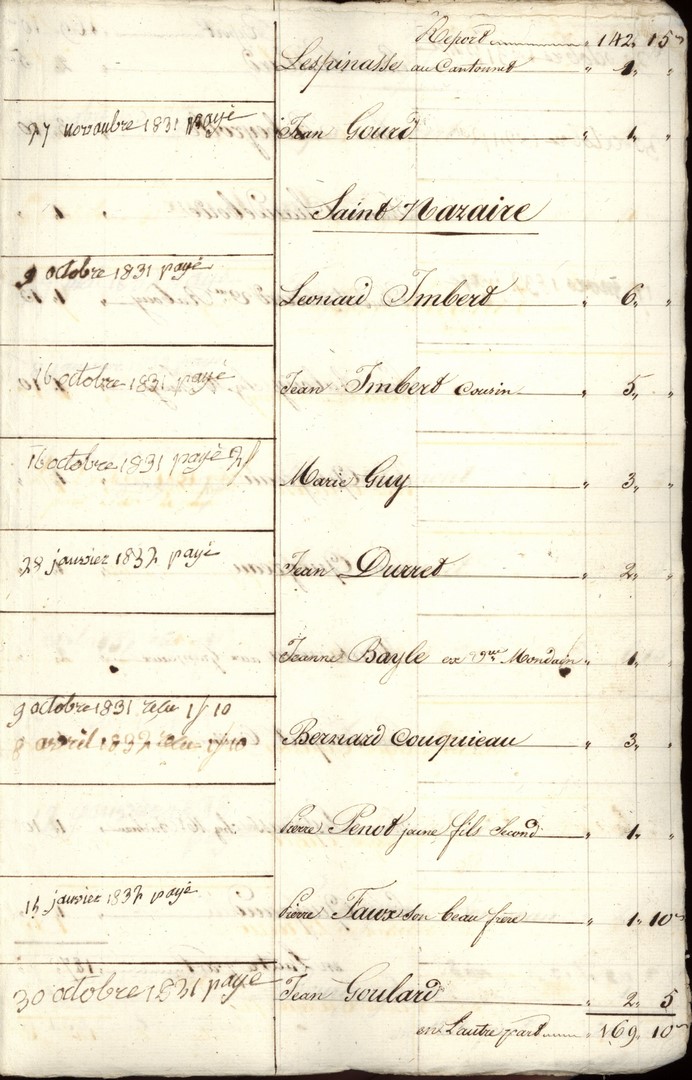 Report " 142 " 15 "
Lespinasse au Cantonnet " 1 " "
27 novembre 1831 payé Jean Gourd " 1 " "
Saint Nazaire
9 octobre 1831 payé Leonard Imbert " 6 " "
16 octobre 1831 payé Jean Imbert Cousin " 5 " "
16 octobre 1831 payé Marie Guy " 3 " "
28 janvier 1832 payé Jean Durret " 2 " "
Jeanne Bayle Mondain " 1 " "
9 octobre 1831 recu 1f 10
8 avril 1832 recu 1f 10 Bernard Couquieau " 3 " "
Pierre Penot jaune fils Second " 1 " "
15 janvier 1832 payé Pierre Faux son beau frere " 1 " 10 "
30 octobre 1831 payé Jean Goulard " 2 " 5
en L'autre part " 169 " 10 "